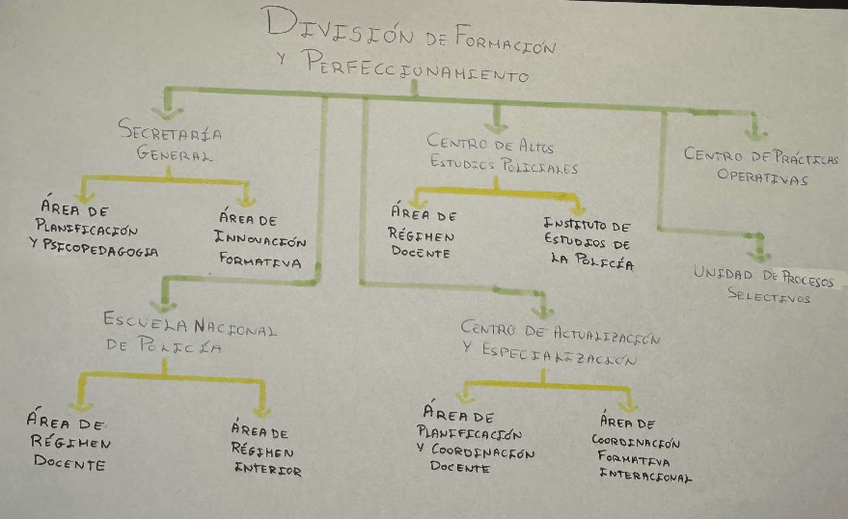 DIVISIÓN DE FORMACIÓN
Y PERFECCIONAMIENTO
SECRETARÍA
GENERAL
ÁREA DE
PLANIFICACIÓN
Y PSICOPEDAGOGIA
ÁREA DE
INNOVACIÓN
FORMATIVA
CENTRO DE ALTOS
ESTUDIOS POLICIALES
ÁREA DE
RÉGIMEN
DOCENTE
INSTITUTO DE
ESTUDIOS DE
LA POLICÍA
CENTRO DE PRÁCTICAS
OPERATIVAS
UNIDAD DE PROCESOS
SELECTIVOS
ESCUELA NACIONAL
DE POLICÍA
ÁREA DE
RÉGIMEN
DOCENTE
ÁREA DE
RÉGIMEN
INTERIOR
CENTRO DE ACTUALIZACIÓN
Y ESPECIALIZACIÓN
ÁREA DE
PLANIFICACIÓN
Y COORDINACIÓN
DOCENTE
ÁREA DE
COORDINACIÓN
FORMATIVA
INTERACIONAL